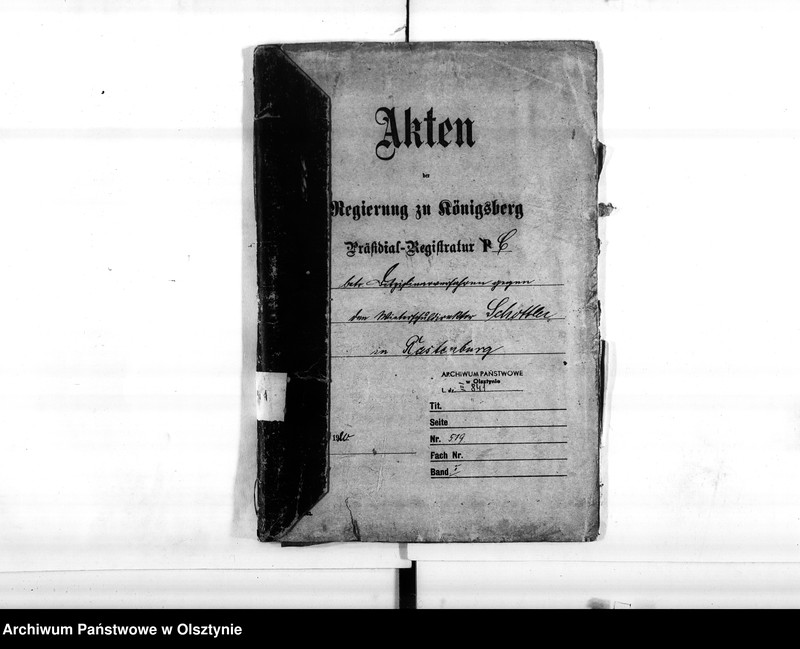 Akten
der
Regierung zu Königsberg
Präsidial-Registratur P C
betr. Disziplinarverfahren gegen
den Winterschuldirektor Schöttler
in Rastenburg
ARCHIWUM PAŃSTWOWE
w Olsztynie
I. dz. 841
Tit.
Seite
Nr. 519
Fach Nr.
Band I
19
Archiwum Państwowe w Olsztynie